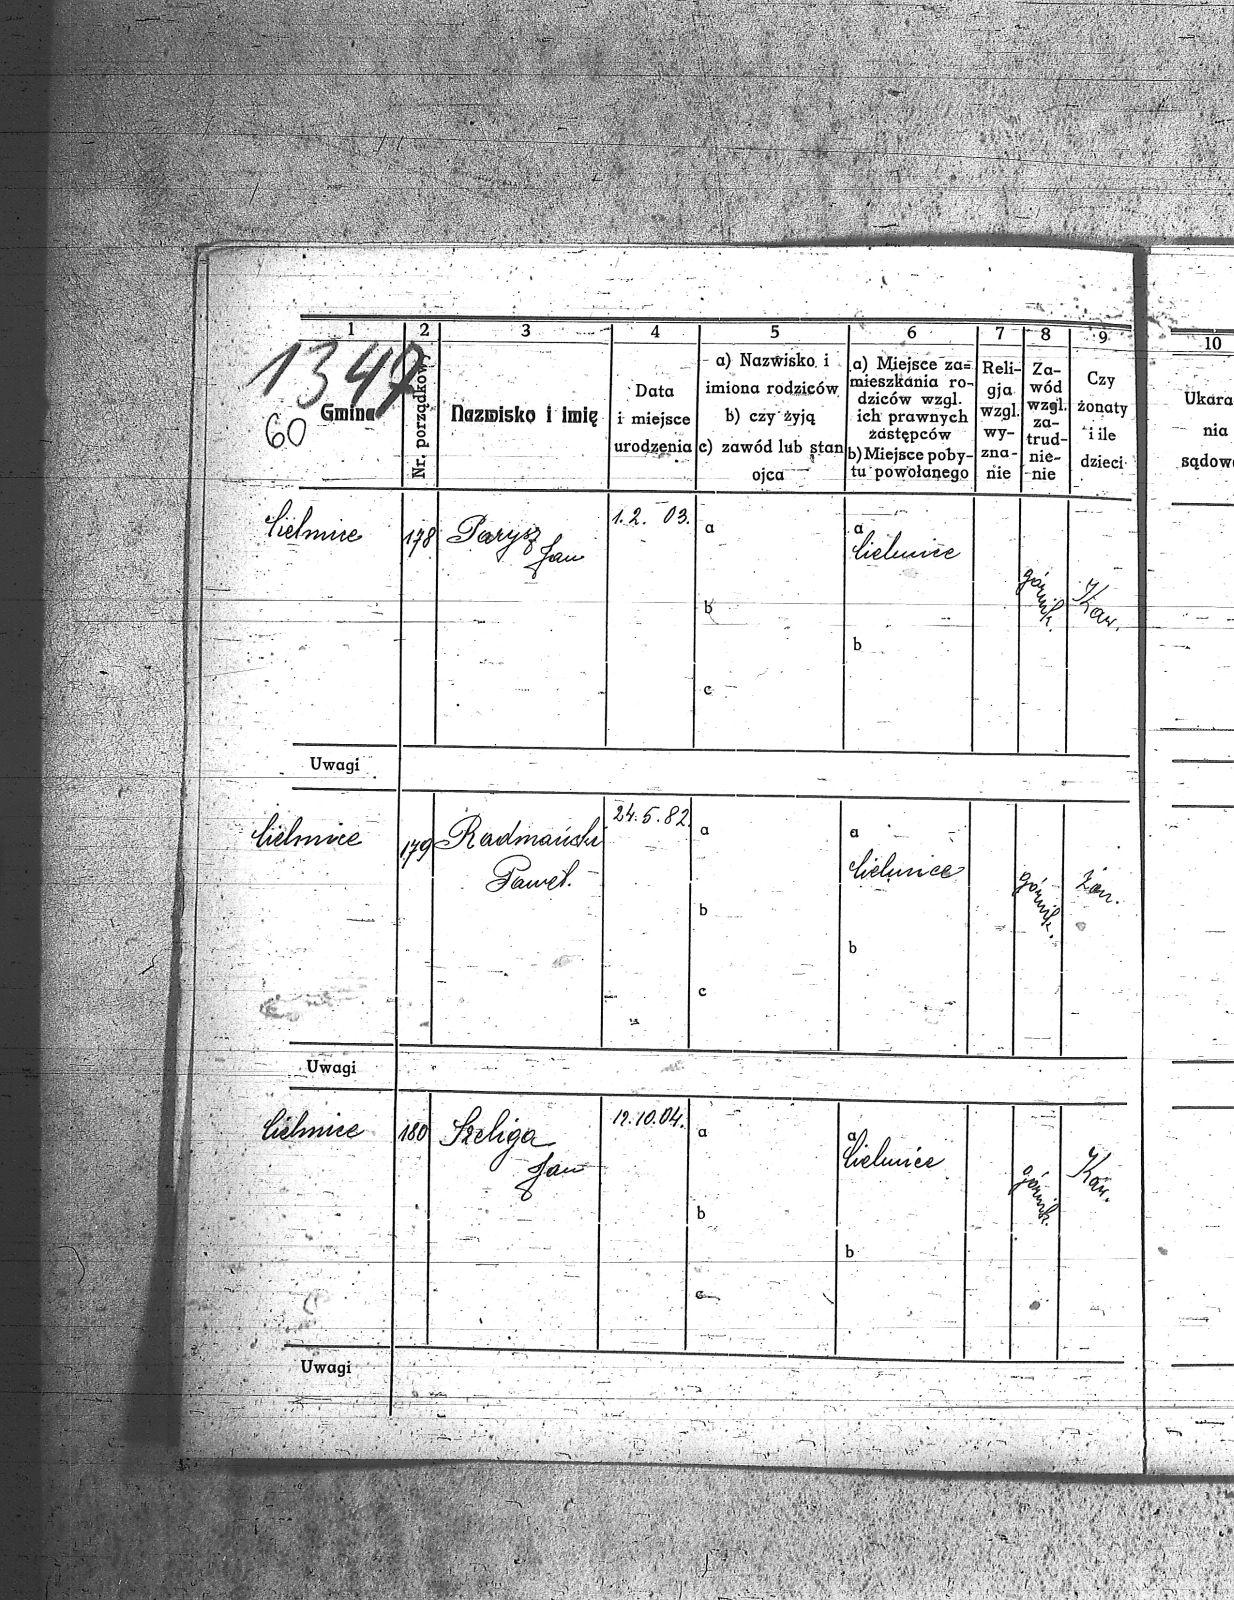 1 2 3 4 5 6 7 8 9 10
1347
60
Gmina
Nr. porządkowy
Nazwisko i imię
Data
i miejsce
urodzenia
a) Nazwisko i
imiona rodziców
b) czy żyją
c) zawód lub stan
ojca
a) Miejsce za=
mieszkania ro-
dziców wzgl.
ich prawnych
zastępców
b) Miejsce poby-
tu powołanego
Reli-
gja
wzgl.
wy-
zna-
nie
Za-
wód
wzgl.
za-
trud-
nie-
nie
Czy
żonaty
i ile
dzieci
Ukara
nia
sądow
Cielmice 178 Parysz
Jan
1.2. 03.
a
b
c
a
Cielmice
b
górnik.
Kaw.
Uwagi
Cielmice 179 Radmański
Paweł.
24.5.82.
a
b
c
a
Cielmice
b
górnik.
żon.
Uwagi
Cielmice 180 Szeliga
Jan
12.10.04.
a
b
c
a
Cielmice
b
górnik.
Kaw.
Uwagi